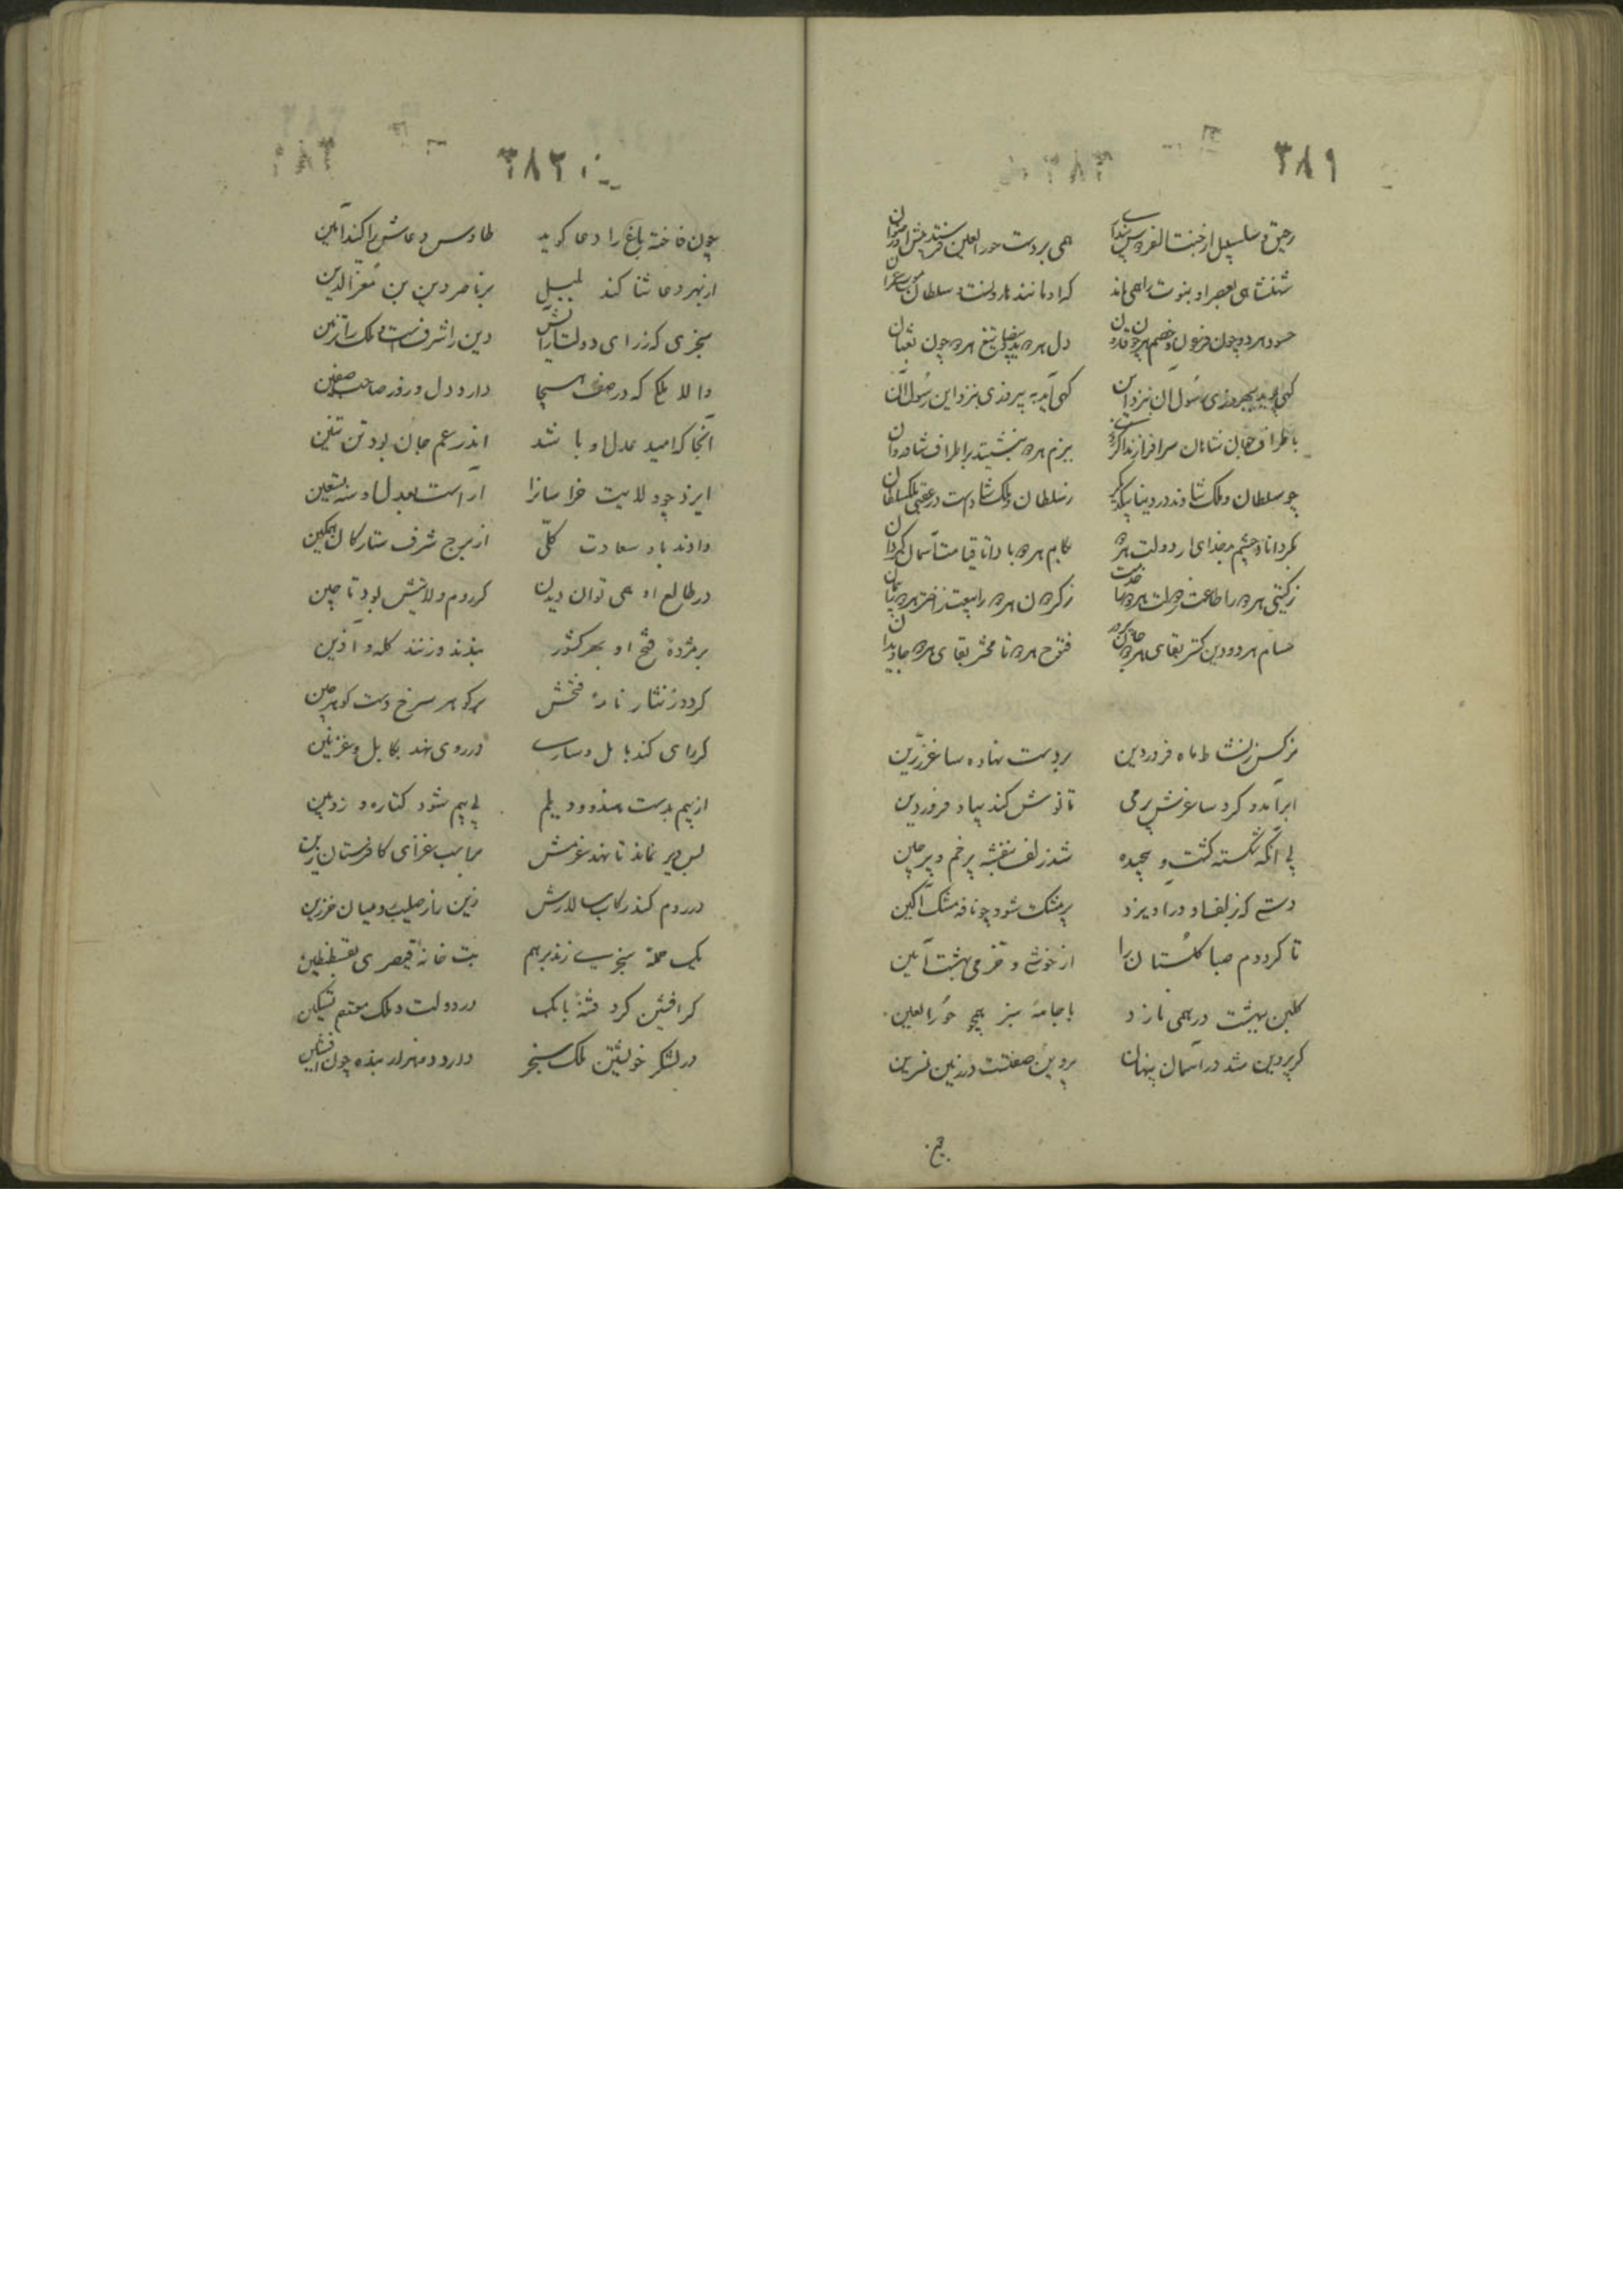 ۳۸۱
رحیق و سلسبیل از جنت الفردوس پنداری همی بر دست حورالعین فرستد پیش او رضوان
شهنشاهی بعصر او بنوت را همی ماند که او مانند هارونست و سلطان موسی عمران
حسود هر دو چون فرعون و خصم هر دو چون قارون دل هر دو ید بیضا و تیغ هر دو چون ثعبان
کهی آید به بهروزی رسول آن بنزد این کهی آید به پیروزی بنزد این رسول آن
باطراف جهان شاهان سرافرازند اکر بزم هر دو بنشینند بر اطراف شادروان
چو سلطان و ملک شادند در دنیا بیکدیگر ز سلطان و ملک شادست در عقبی ملک سلطان
مکرداناد چشم بد خدای از دولت هر دو بکام هر دو بادا تا قیامت آسمان کردان
ز کیتی هر دو را طاعت ز کردون هر دو را بیعت
حسام هر دو دین کستر بقای هر دو جان پرور فتوح هر دو تا محشر بقای هر دو جاویدان
نرکس ز نشاط ماه فروردین بر دست نهاده ساغر زرین
ابر آمد و کرد ساغرش پر می تا نوش کند بیاد فروردین
بی آنکه شکسته کشت و پیچیده شد زلف بنفشه پر خم و پر چین
دستی که بزلف او در آویزد پر مشک شود چو نافه مشک آکین
تا کرد دم صبا کلستان را از خوشی و خرمی بهشت آیین
کلبن ببهشت در همی نازد با جامه سبز همچو حورالعین
کر پروین شد در آسمان پنهان پروین صفتست در زمین نسرین
۳۸۲
چون فاخته باغ را دعا کوید طاوس دعاش را کند آمین
از بهر دعا ثنا کند بلبل بر ناصر دین بن معزالدین
سنجری که ز رای و دولت و رایش دین را شرفست و ملک را تزیین
والا ملکی که در صف هیجا دارد دل و زور صاحب صفین
آنجا که امید عدل او باشد اندر غم جان بود تن تنین
ایزد چو ولایت خراسانرا آراست بعدل او سنه تسعین
دادند باو سعادت کلی از برج شرف ستارکان همکین
در طالع او همی توان دیدن کز روم ولایتش بود تا چین
بر مژده فتح او بهر کشور بندند و زنند کله و آذین
کردد ز نثار نامه فتحش پر کوهر سرخ دست کوهرچین
کر رای کند بابل و سارب در روی نهد بکابل و غزنین
از بیم بدست هندو و دیلم بی بیم شود کتاره و زوبین
بس دیر نماند تا نهد عزمش بر اسب غزای کافرستان زین
در روم کند رکاب سالارش زین باز صلیب و میان خرزین
یک حمله سنجری زند بر هم بت خانه قیصری بقسطنطین
کر افشین کرد فتنه بابک در دولت و ملک معتصم تسکین
در لشکر خویشتن ملک سنجر دارد دو هزار بنده چون افشین